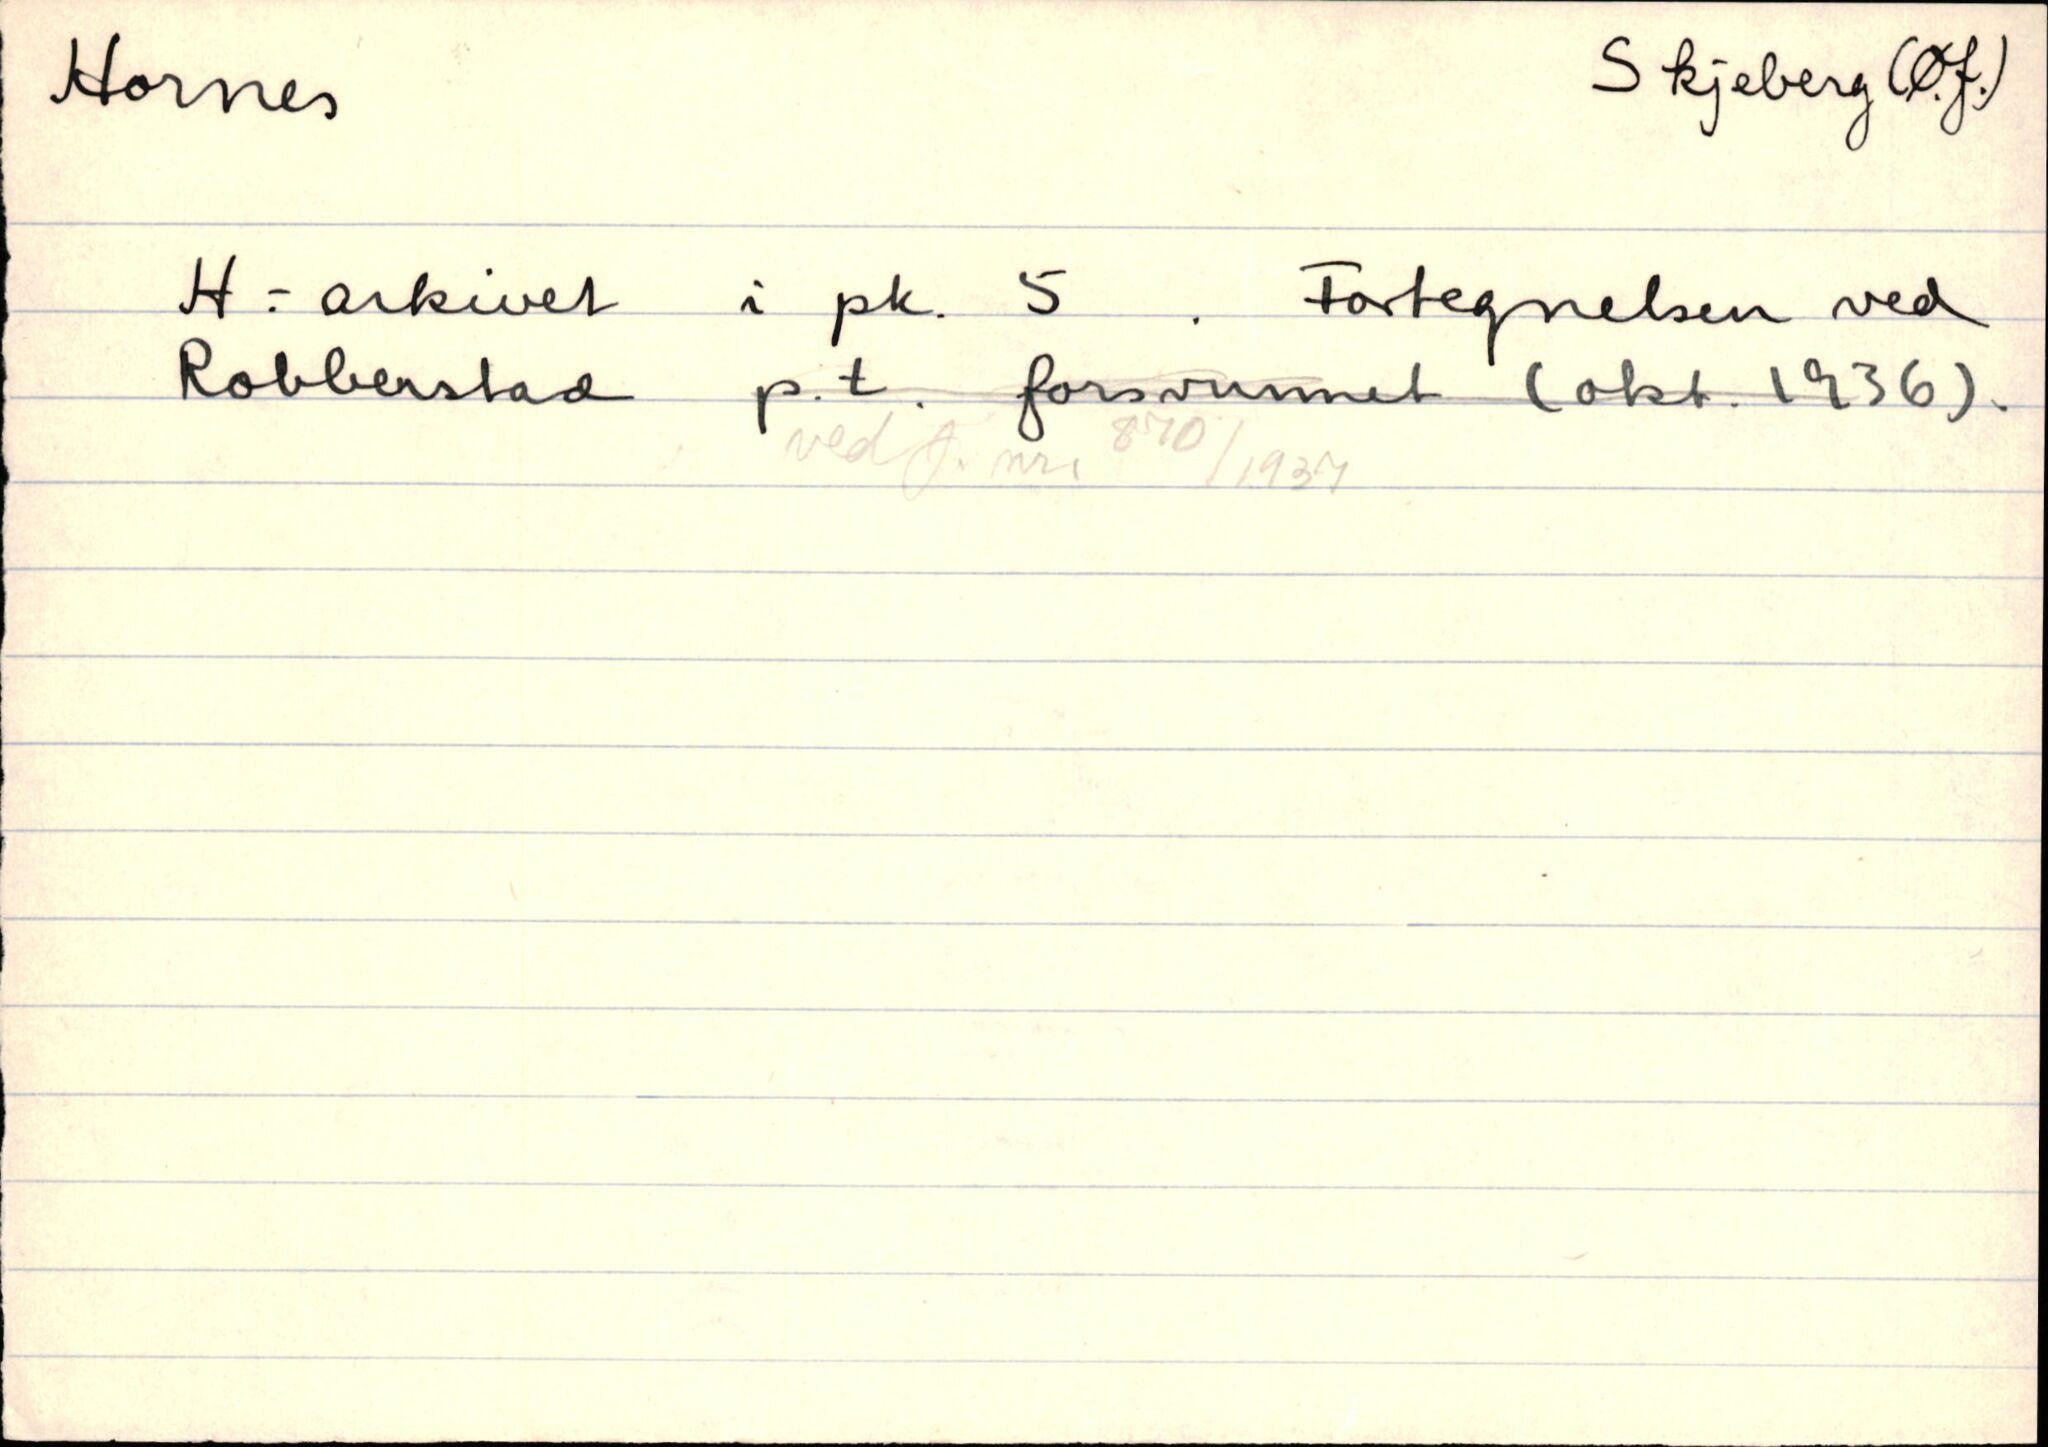 Hornes
Skjeberg (Ø.f.)
H-arkivet i pk. 5. Fortegnelsen ved
Robberstad p.t. forsvunnet (okt. 1936).
ved J. nr. 870/1937